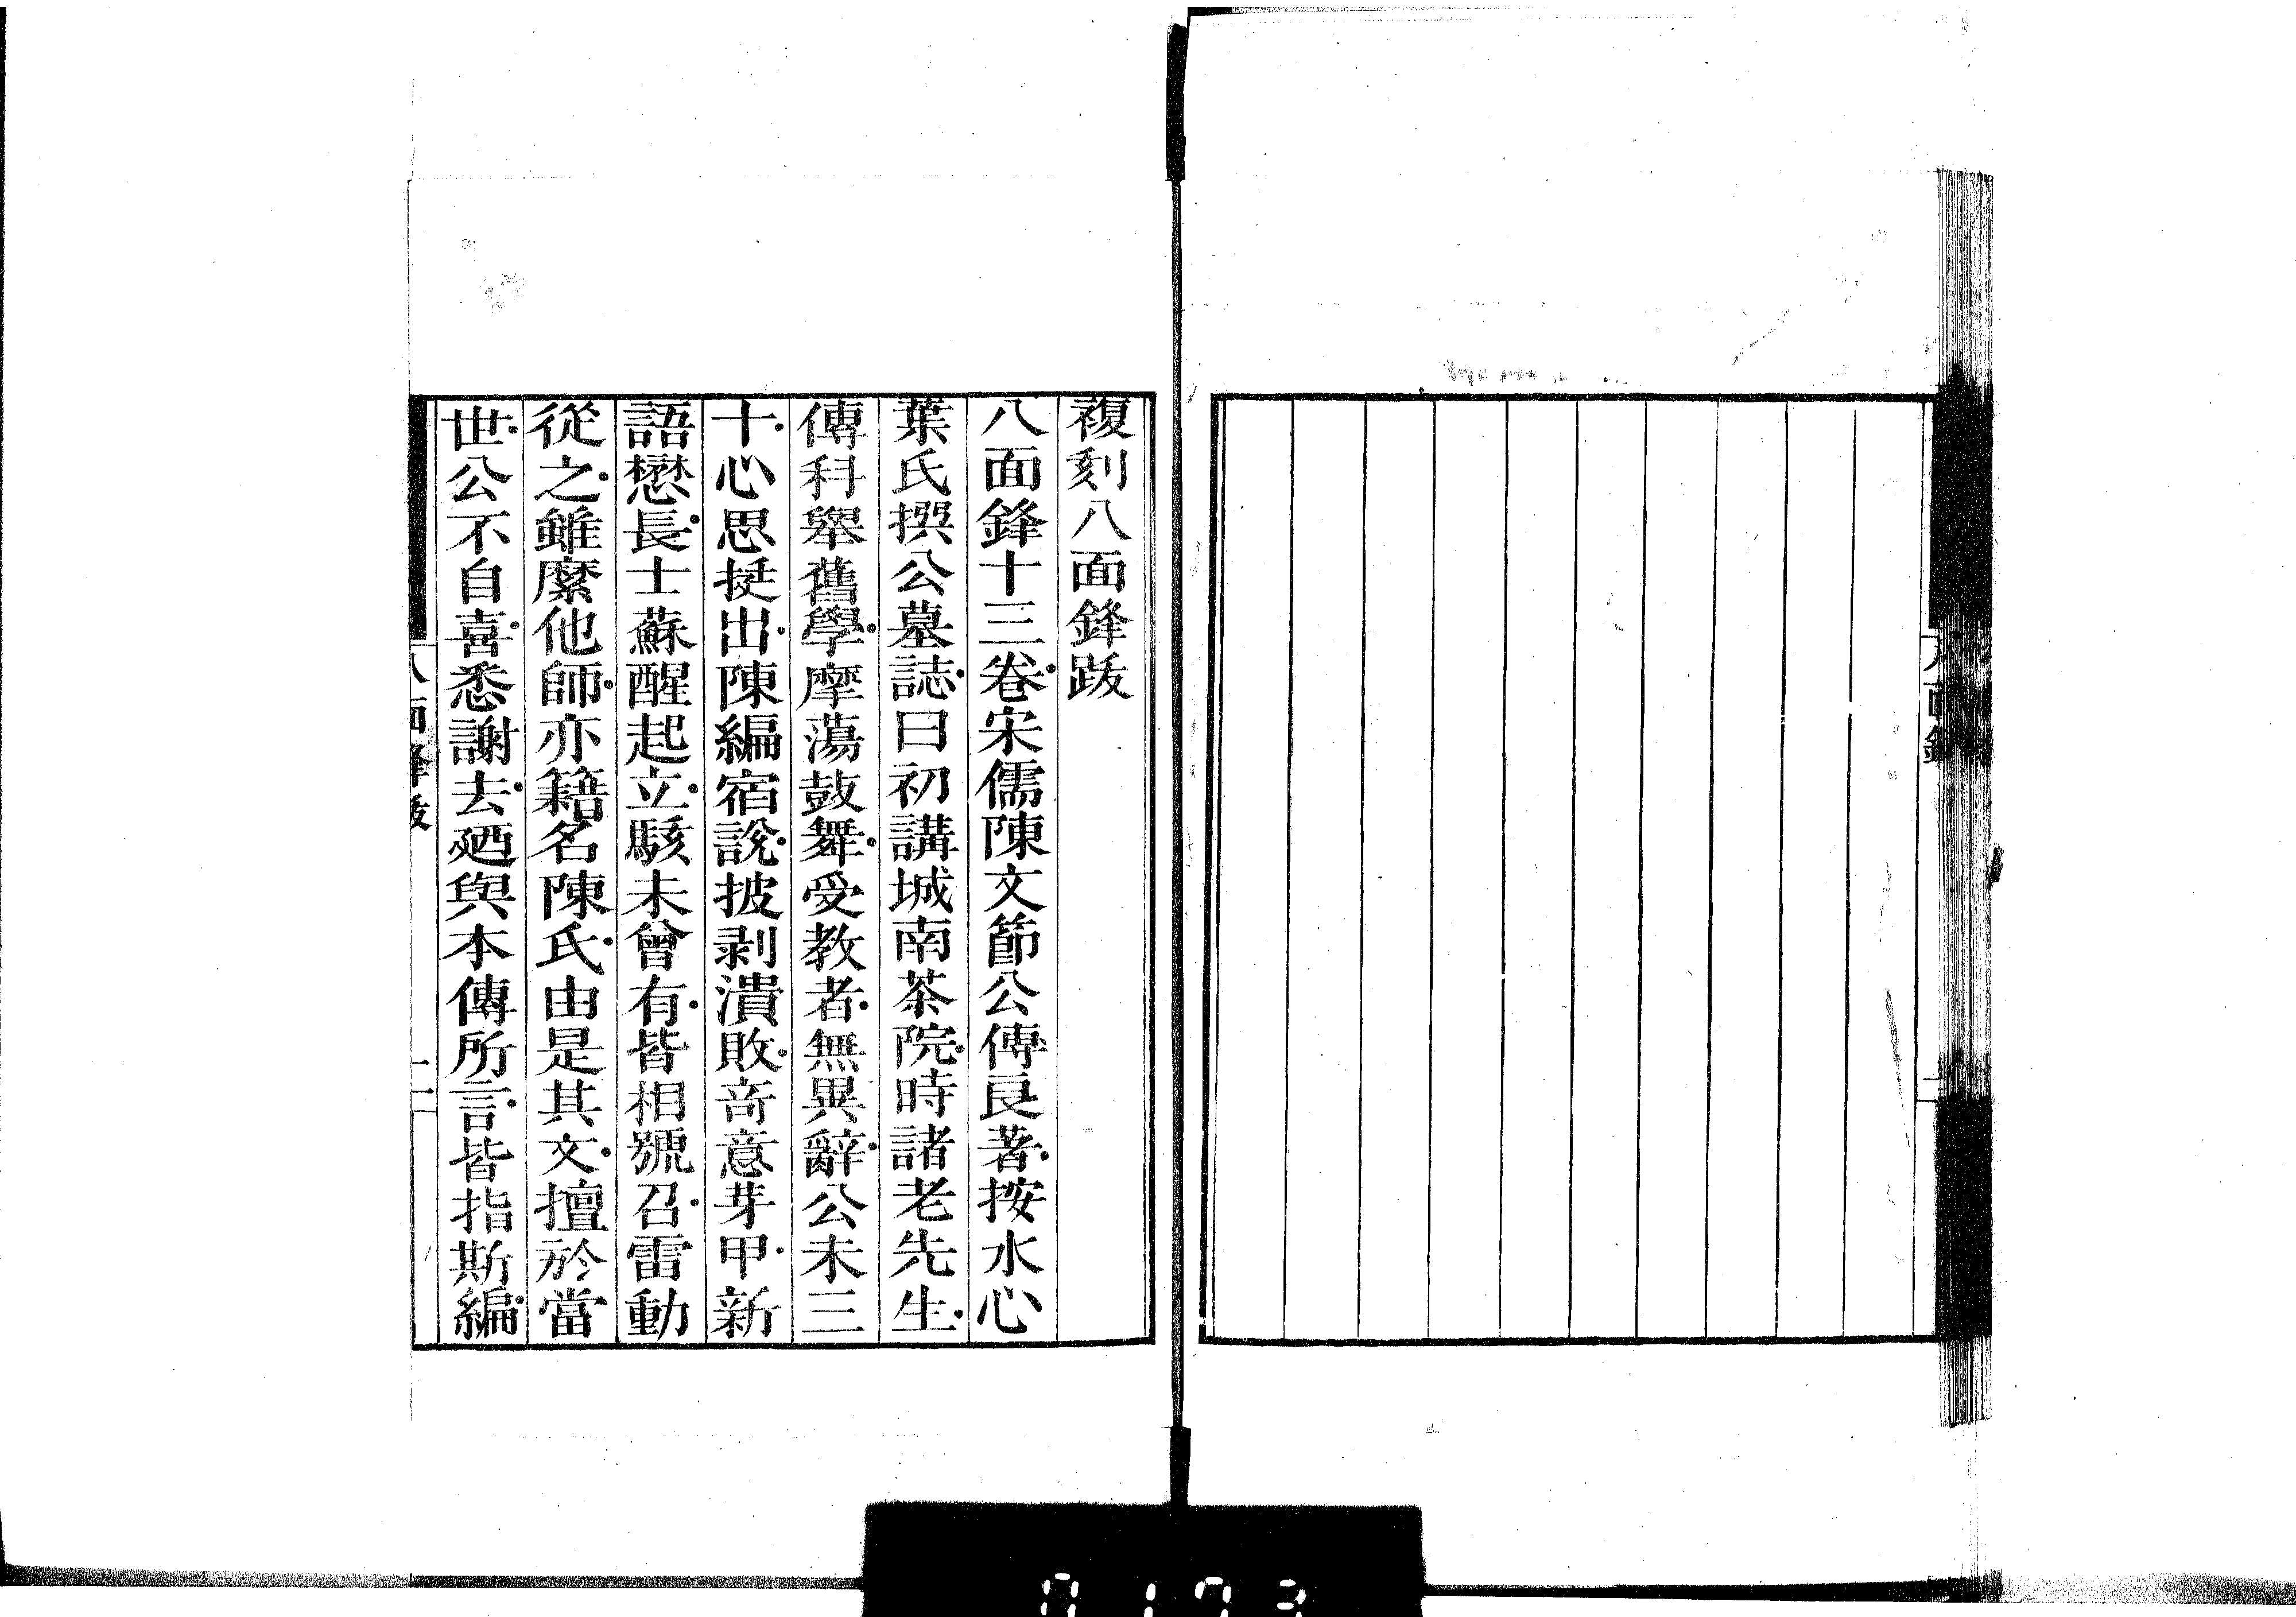 複刻八面鋒跋
八面鋒十三卷宋儒陳文節公傅良著按水心
葉氏撰公墓誌曰初講城南茶院時諸老先生
傳科舉舊學摩蕩鼓舞受教者無異辭公未三
十心思挺出陳編宿說披剥潰敗奇意芽甲新
語懋長士蘇醒起立駭未曾有皆相號召雷動
從之雖縻他師亦籍名陳氏由是其文擅於當
世公不自喜悉謝去廼與本傳所言皆指斯編
八面鋒跋
一
八面鋒
0173